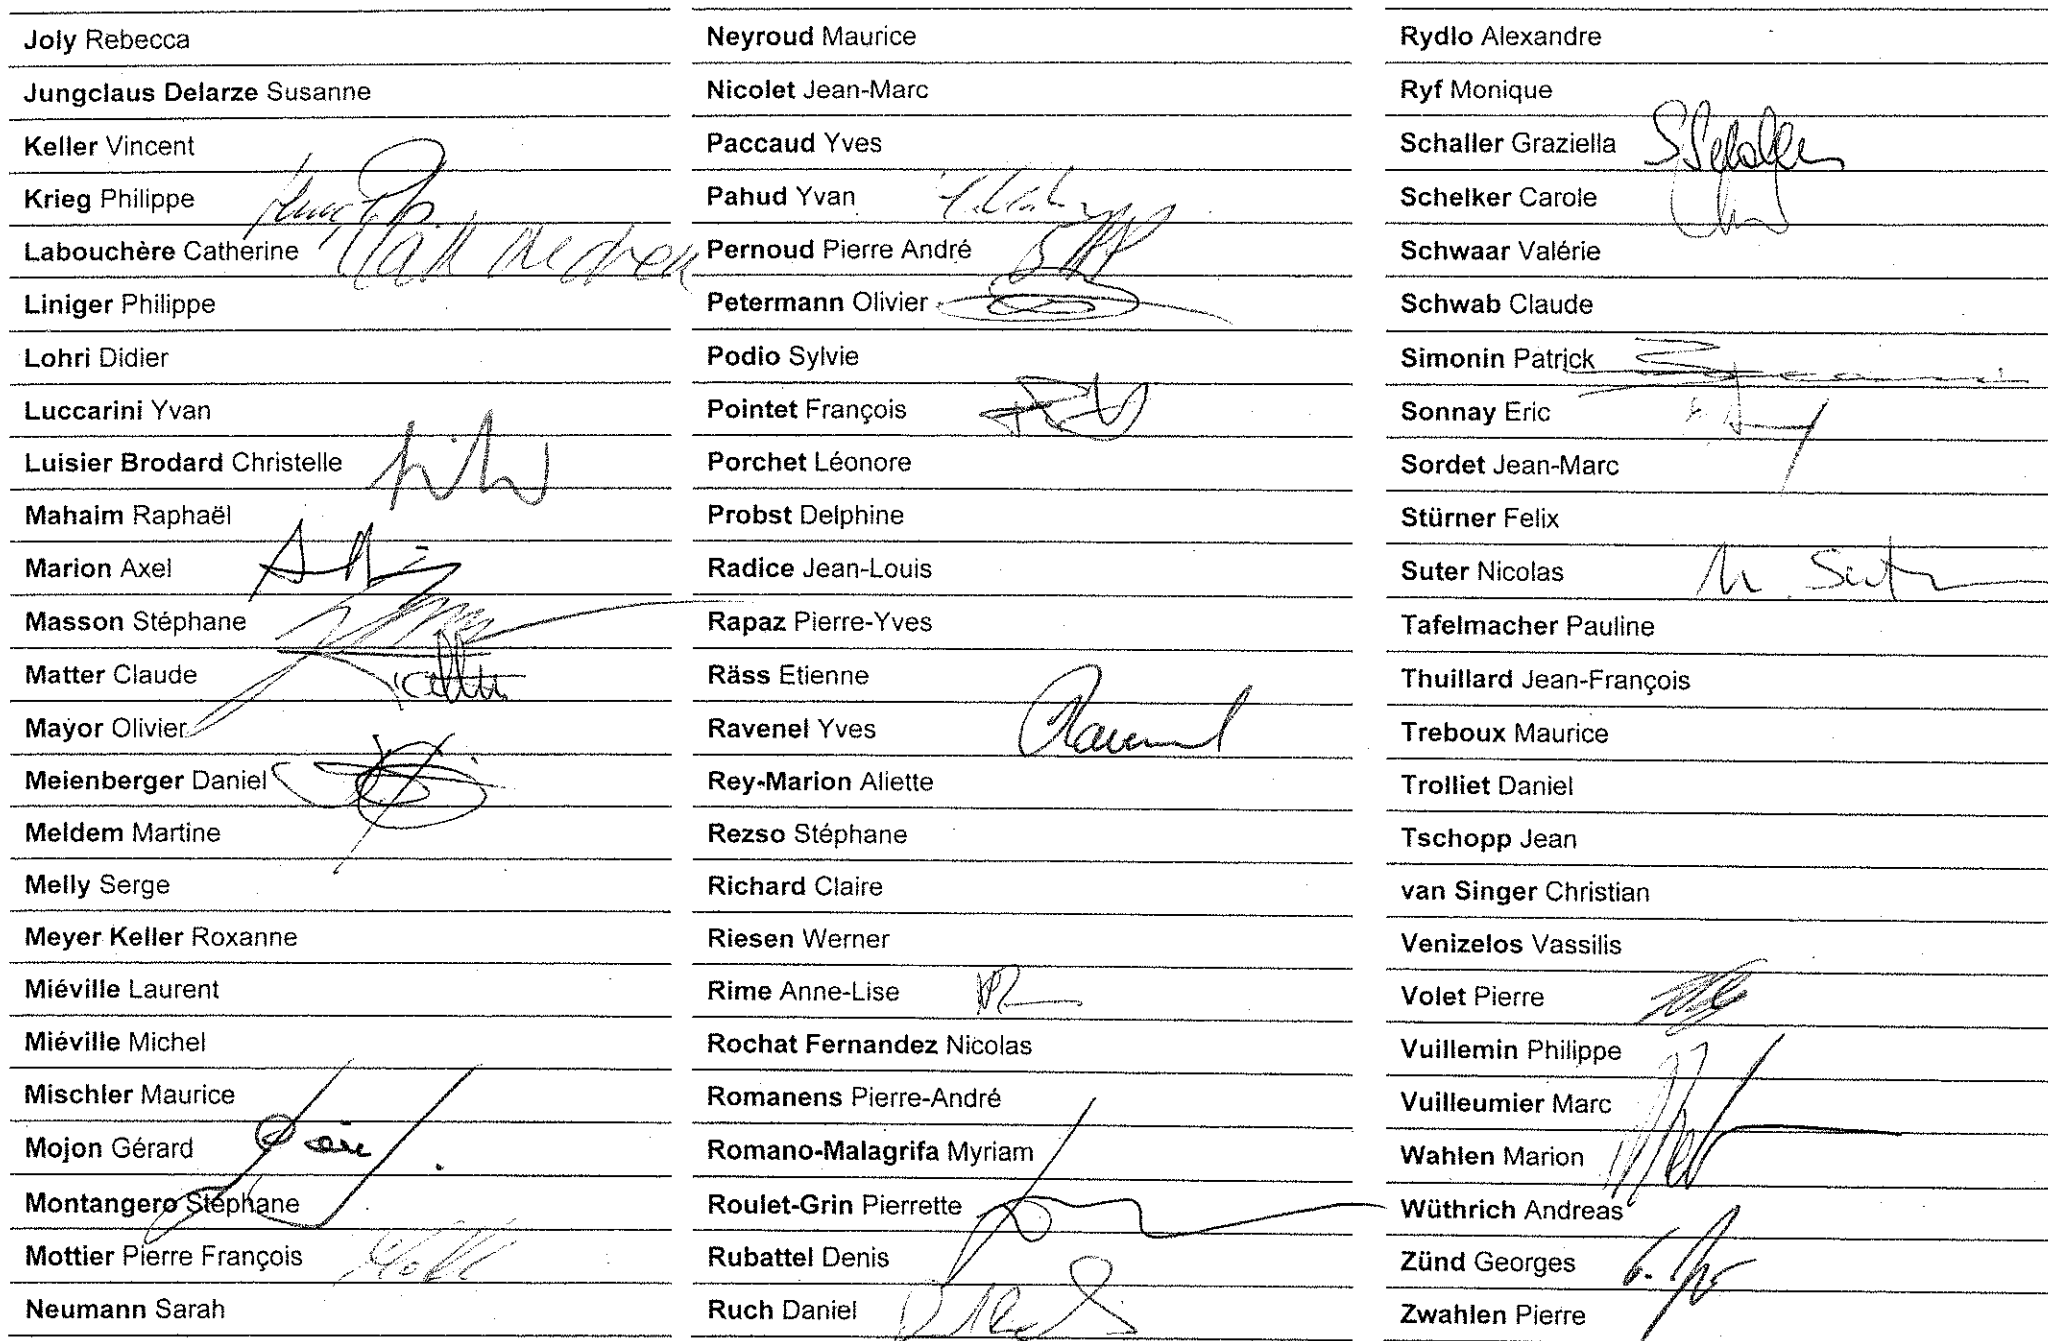 Joly Rebecca
Jungclaus Delarze Susanne
Keller Vincent
Krieg Philippe
Labouchère Catherine
Liniger Philippe
Lohri Didier
Luccarini Yvan
Luisier Brodard Christelle
Mahaim Raphaël
Marion Axel
Masson Stéphane
Matter Claude
Mayor Olivier
Meienberger Daniel
Meldem Martine
Melly Serge
Meyer Keller Roxanne
Miéville Laurent
Miéville Michel
Mischler Maurice
Mojon Gérard
Montangero Stéphane
Mottier Pierre François
Neumann Sarah
Neyroud Maurice
Nicolet Jean-Marc
Paccaud Yves
Pahud Yvan
Pernoud Pierre André
Petermann Olivier
Podio Sylvie
Pointet François
Porchet Léonore
Probst Delphine
Radice Jean-Louis
Rapaz Pierre-Yves
Räss Etienne
Ravenel Yves
Rey-Marion Aliette
Rezso Stéphane
Richard Claire
Riesen Werner
Rime Anne-Lise
Rochat Fernandez Nicolas
Romanens Pierre-André
Romano-Malagrifa Myriam
Roulet-Grin Pierrette
Rubattel Denis
Ruch Daniel
Rydlo Alexandre
Ryf Monique
Schaller Graziella
Schelker Carole
Schwaar Valérie
Schwab Claude
Simonin Patrick
Sonnay Eric
Sordet Jean-Marc
Stürner Felix
Suter Nicolas N. Suter
Tafelmacher Pauline
Thuillard Jean-François
Treboux Maurice
Trolliet Daniel
Tschopp Jean
van Singer Christian
Venizelos Vassilis
Volet Pierre
Vuillemin Philippe
Vuilleumier Marc
Wahlen Marion
Wüthrich Andreas
Zünd Georges
Zwahlen Pierre